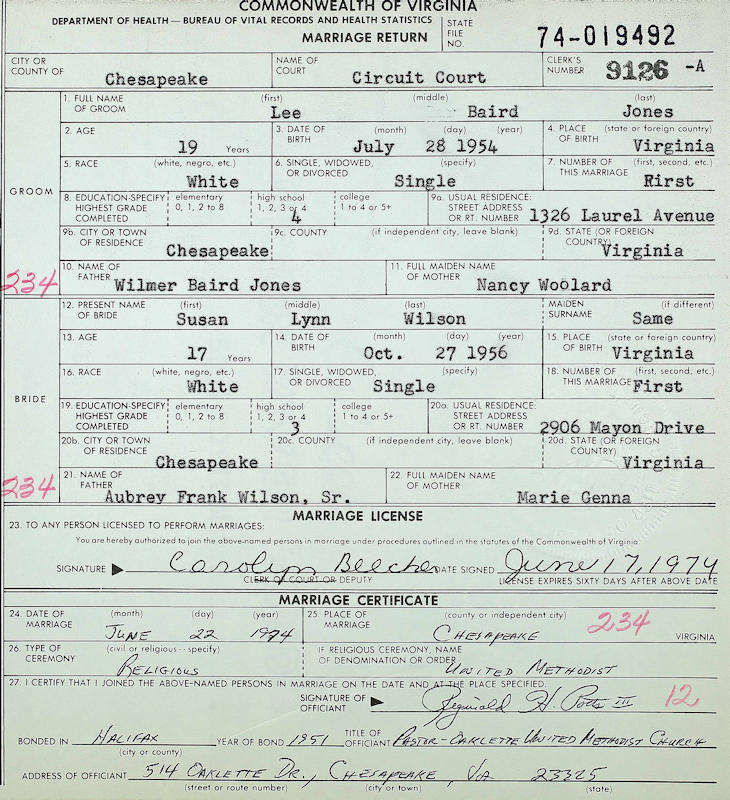 COMMONWEALTH OF VIRGINIA
DEPARTMENT OF HEALTH — BUREAU OF VITAL RECORDS AND HEALTH STATISTICS
MARRIAGE RETURN
STATE FILE NO. 74-019492
CITY OR COUNTY OF Chesapeake NAME OF COURT Circuit Court CLERK'S NUMBER 9126 -A
GROOM
1. FULL NAME OF GROOM (first) Lee (middle) Baird (last) Jones
2. AGE 19 Years 3. DATE OF BIRTH (month) July (day) 28 (year) 1954 4. PLACE OF BIRTH (state or foreign country) Virginia
5. RACE (white, negro, etc.) White 6. SINGLE, WIDOWED, OR DIVORCED (specify) Single 7. NUMBER OF THIS MARRIAGE (first, second, etc.) First
8. EDUCATION-SPECIFY HIGHEST GRADE COMPLETED elementary 0, 1, 2 to 8 high school 1, 2, 3 or 4 4 college 1 to 4 or 5+ 9a. USUAL RESIDENCE: STREET ADDRESS OR RT. NUMBER 1326 Laurel Avenue
9b. CITY OR TOWN OF RESIDENCE Chesapeake 9c. COUNTY (if independent city, leave blank) 9d. STATE (OR FOREIGN COUNTRY) Virginia
234
10. NAME OF FATHER Wilmer Baird Jones 11. FULL MAIDEN NAME OF MOTHER Nancy Woolard
BRIDE
12. PRESENT NAME OF BRIDE (first) Susan (middle) Lynn (last) Wilson MAIDEN SURNAME (if different) Same
13. AGE 17 Years 14. DATE OF BIRTH (month) Oct. (day) 27 (year) 1956 15. PLACE OF BIRTH (state or foreign country) Virginia
16. RACE (white, negro, etc.) White 17. SINGLE, WIDOWED, OR DIVORCED (specify) Single 18. NUMBER OF THIS MARRIAGE (first, second, etc.) First
19. EDUCATION-SPECIFY HIGHEST GRADE COMPLETED elementary 0, 1, 2 to 8 high school 1, 2, 3 or 4 3 college 1 to 4 or 5+ 20a. USUAL RESIDENCE: STREET ADDRESS OR RT. NUMBER 2906 Mayon Drive
20b. CITY OR TOWN OF RESIDENCE Chesapeake 20c. COUNTY (if independent city, leave blank) 20d. STATE (OR FOREIGN COUNTRY) Virginia
234
21. NAME OF FATHER Aubrey Frank Wilson, Sr. 22. FULL MAIDEN NAME OF MOTHER Marie Genna
MARRIAGE LICENSE
23. TO ANY PERSON LICENSED TO PERFORM MARRIAGES:
You are hereby authorized to join the above-named persons in marriage under procedures outlined in the statutes of the Commonwealth of Virginia.
SIGNATURE Carolyn Beecher DATE SIGNED June 17, 1974
CLERK OF COURT OR DEPUTY LICENSE EXPIRES SIXTY DAYS AFTER ABOVE DATE
MARRIAGE CERTIFICATE
24. DATE OF MARRIAGE (month) JUNE (day) 22 (year) 1974 25. PLACE OF MARRIAGE (county or independent city) CHESAPEAKE 234 VIRGINIA
26. TYPE OF CEREMONY (civil or religious - - specify) RELIGIOUS IF RELIGIOUS CEREMONY, NAME OF DENOMINATION OR ORDER UNITED METHODIST
27. I CERTIFY THAT I JOINED THE ABOVE-NAMED PERSONS IN MARRIAGE ON THE DATE AND AT THE PLACE SPECIFIED.
SIGNATURE OF OFFICIANT Reginald H. Potts III 12
BONDED IN HALIFAX (city or county) YEAR OF BOND 1951 TITLE OF OFFICIANT PASTOR-OAKLETTE UNITED METHODIST CHURCH
ADDRESS OF OFFICIANT 514 OAKLETTE DR., CHESAPEAKE, VA 23325
(street or route number) (city or town) (state)